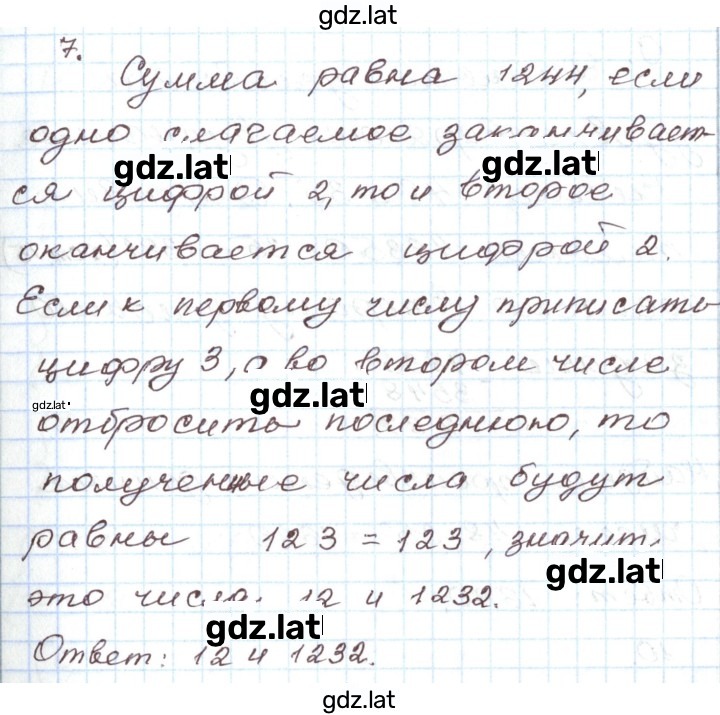 gdz.lat
7.
Сумма равна 1244, если
одно слагаемое заканчивает-
gdz.lat gdz.lat
ся цифрой 2, то и второе
оканчивается цифрой 2.
Если к первому числу приписать
цифру 3, а во втором числе
gdz.lat gdz.lat
отбросить последнюю, то
полученные числа будут
равны 123 = 123, значит,
gdz.lat
это числа: 12 и 1232.
gdz.lat
Ответ: 12 и 1232.
gdz.lat